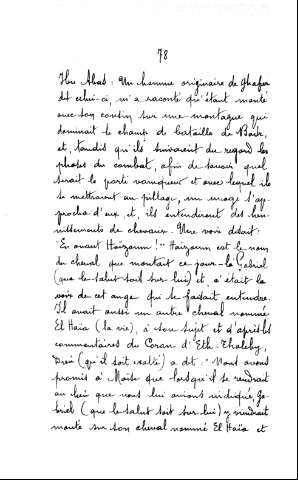 78
Ibn Abas : Un homme originaire de Ghafar
dit celui-ci, m'a raconté qu'étant monté
avec son cousin sur une montagne qui
dominait le champ de bataille de Bedr,
et, tandis qu'ils suivaient du regard les
phases du combat, afin de savoir quel
serait le parti vainqueur et avec lequel ils
se mettraient au pillage, un nuage s'ap-
procha d'eux et, ils entendirent des hen-
nissements de chevaux. Une voix disait:
"En avant Haïzoum !" Haïzoum est le nom
du cheval que montait ce jour-là Gabriel
(que le salut soit sur lui) et, c'était la
voix de cet ange qui se faisait entendre.
Il avait aussi un autre cheval nommé
El Haïa (la vie), à son sujet et d'après les
commentaires du Coran d'Eth. Thaleby,
Dieu (qu'il soit exalté) a dit : "Nous avons
promis à Moïse que lorsqu'il se rendrait
au lieu que nous lui avions indiqué, Ga-
briel (que le salut soit sur lui) y viendrait
monté sur son cheval nommé El Haïa et